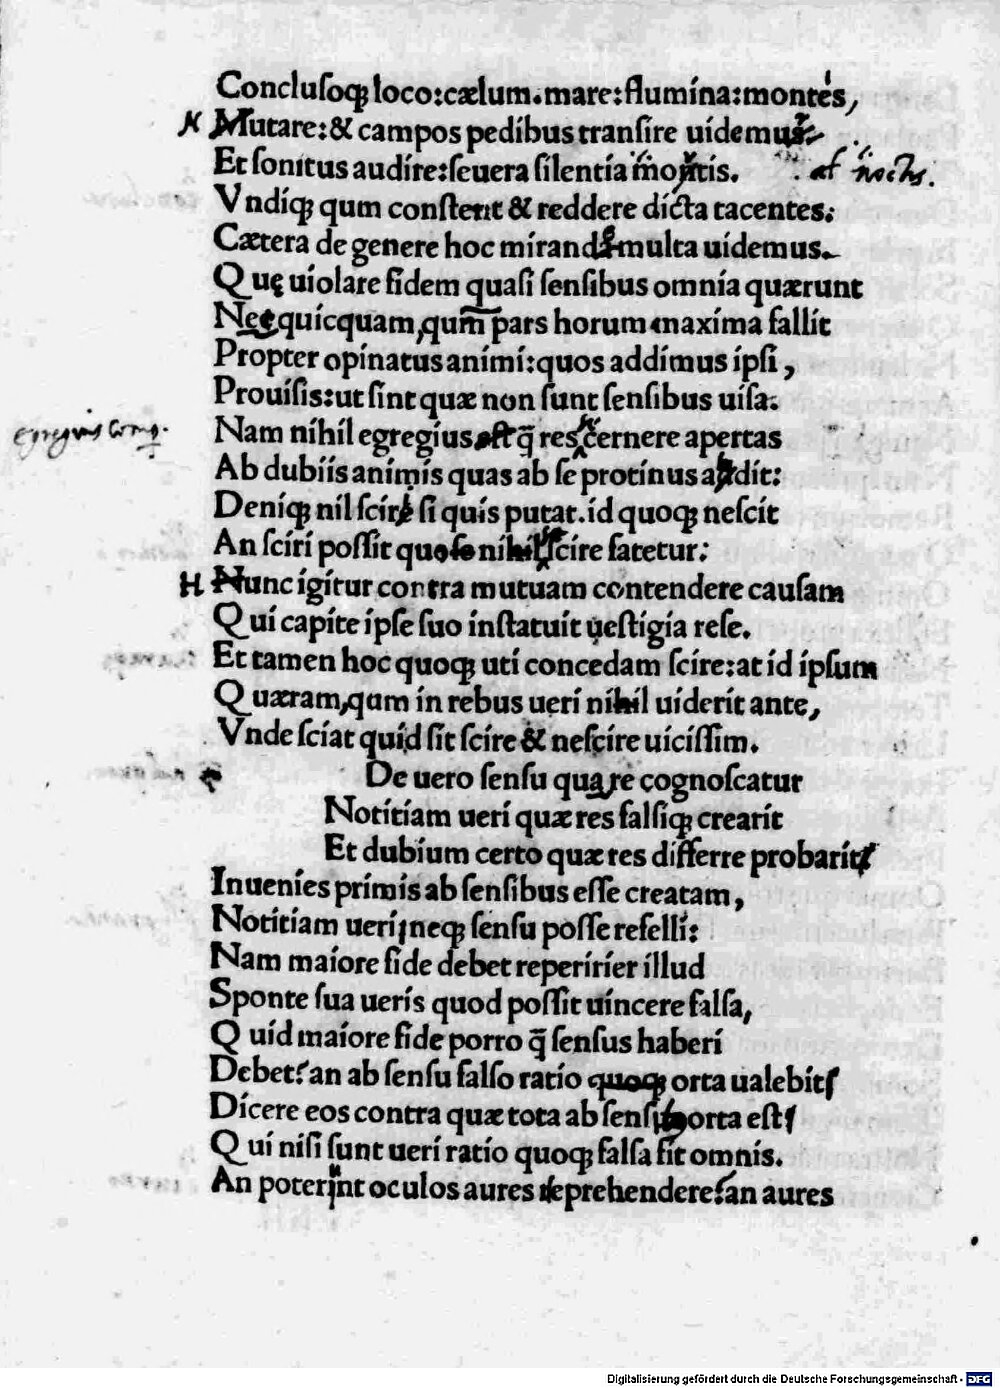 Concluſoq; loco:cælum.mare:flumina:montes,
Mutare:& campos pedibus tranſire uidemus
Et ſonitus audire:ſeuera ſilentia montis. al noctis.
Vndiq; qum conſtent & reddere dicta tacentes:
Cætera de genere hoc mirande multa uidemus.
Quę uiolare fidem quaſi ſenſibus omnia quærunt
Nec quicquam,qum pars horum maxima fallit
Propter opinatus animi:quos addimus ipſi,
Prouiſis:ut ſint quæ non ſunt ſenſibus uiſa:
Nam nihil egregius eſt q̄ res cernere apertas
Ab dubiis animis quas ab ſe protinus addit:
Deniq; nil ſcire ſi quis putat.id quoq; neſcit
An ſciri poſſit quo ſe nihil ſcire fatetur:
H Nunc igitur contra mutuam contendere cauſam
Qui capite ipſe ſuo inſtatuit ueſtigia reſe.
Et tamen hoc quoq; uti concedam ſcire:at id ipſum
Quæram,qum in rebus ueri nihil uiderit ante,
Vnde ſciat quid ſit ſcire & neſcire uiciſſim.
De uero ſenſu quare cognoſcatur
Notitiam ueri quæ res falſiq; crearit
Et dubium certo quæ res differre probarit
Inuenies primis ab ſenſibus eſſe creatam,
Notitiam ueri neq; ſenſu poſſe refelli:
Nam maiore fide debet reperirier illud
Sponte ſua ueris quod poſſit uincere falſa,
Quid maiore fide porro q̄ ſenſus haberi
Debet?an ab ſenſu falſo ratio quoq; orta ualebit
Dicere eos contra quæ tota ab ſenſu orta eſt
Qui niſi ſunt ueri ratio quoq; falſa fit omnis.
An poterint oculos aures reprehendere?an aures
Digitalisierung gefördert durch die Deutsche Forschungsgemeinschaft - DFG